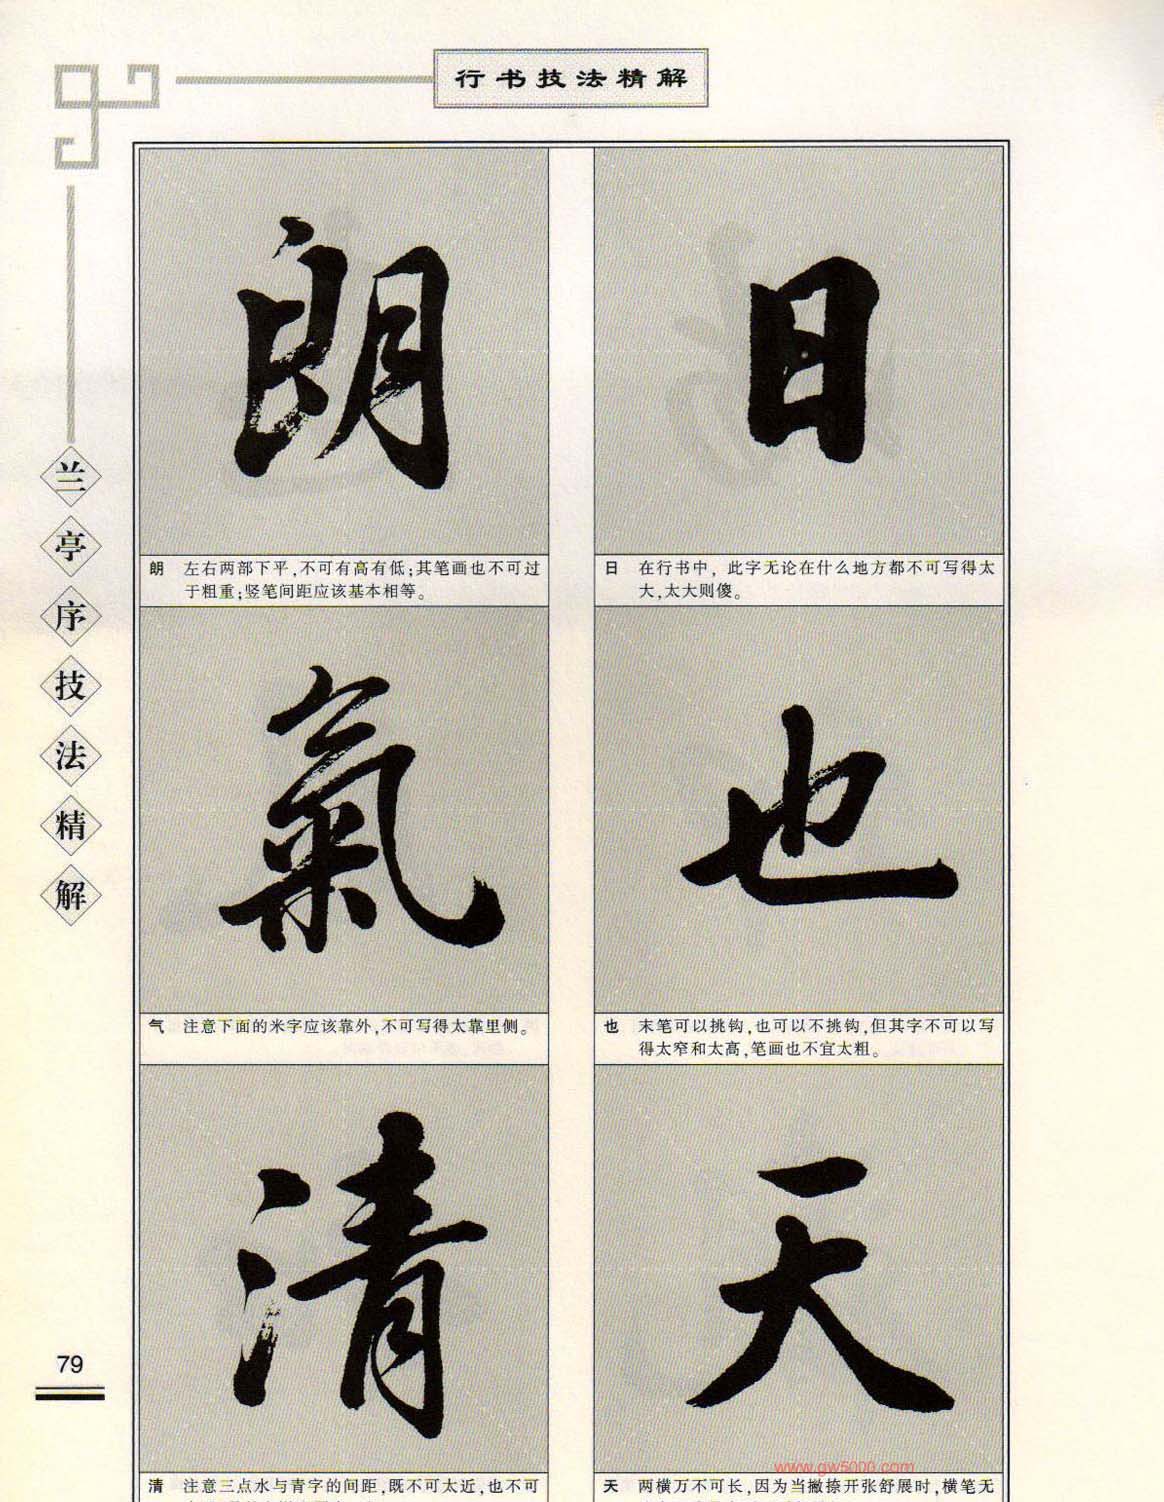 行书技法精解
兰亭序技法精解
日
日 在行书中，此字无论在什么地方都不可写得太
大，太大则傻。
也
也 末笔可以挑钩，也可以不挑钩，但其字不可以写
得太窄和太高，笔画也不宜太粗。
天
天 两横万不可长，因为当撇捺开张舒展时，横笔无
朗
朗 左右两部下平，不可有高有低；其笔画也不可过
于粗重；竖笔间距应该基本相等。
氣
气 注意下面的米字应该靠外，不可写得太靠里侧。
清
清 注意三点水与青字的间距，既不可太近，也不可
79
www.gw5000.com